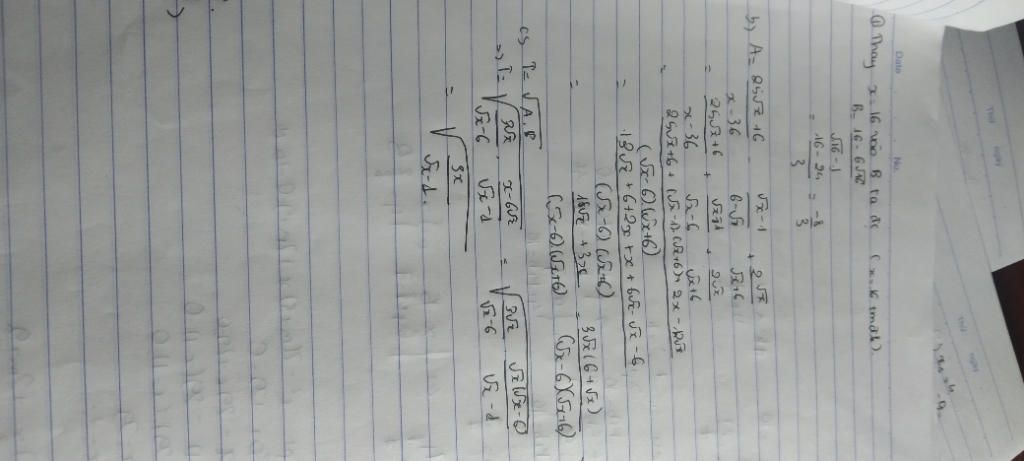 Date
No.
a) Thay x = 16 vào B ta đc (x = 16 tmđk)
B = \frac{16 - 6\sqrt{16}}{\sqrt{16} - 1}
= \frac{16 - 24}{3} = \frac{-8}{3}
b) A = \frac{24\sqrt{x} + 6}{x - 36} - \frac{\sqrt{x} - 1}{6 - \sqrt{x}} + \frac{2\sqrt{x}}{\sqrt{x} + 6}
= \frac{24\sqrt{x} + 6}{x - 36} + \frac{\sqrt{x} - 1}{\sqrt{x} - 6} + \frac{2\sqrt{x}}{\sqrt{x} + 6}
= \frac{24\sqrt{x} + 6 + (\sqrt{x} - 1)(\sqrt{x} + 6) + 2x - 12\sqrt{x}}{(\sqrt{x} - 6)(\sqrt{x} + 6)}
= \frac{12\sqrt{x} + 6 + 2x + x + 6\sqrt{x} - \sqrt{x} - 6}{(\sqrt{x} - 6)(\sqrt{x} + 6)}
= \frac{18\sqrt{x} + 3x}{(\sqrt{x} - 6)(\sqrt{x} + 6)} = \frac{3\sqrt{x}(6 + \sqrt{x})}{(\sqrt{x} - 6)(\sqrt{x} + 6)}
c) P = \sqrt{A.B}
=> P = \sqrt{\frac{3\sqrt{x}}{\sqrt{x} - 6} . \frac{x - 6\sqrt{x}}{\sqrt{x} - 1}} = \sqrt{\frac{3\sqrt{x}}{\sqrt{x} - 6} . \frac{\sqrt{x}(\sqrt{x} - 6)}{\sqrt{x} - 1}}
= \sqrt{\frac{3x}{\sqrt{x} - 1}}.